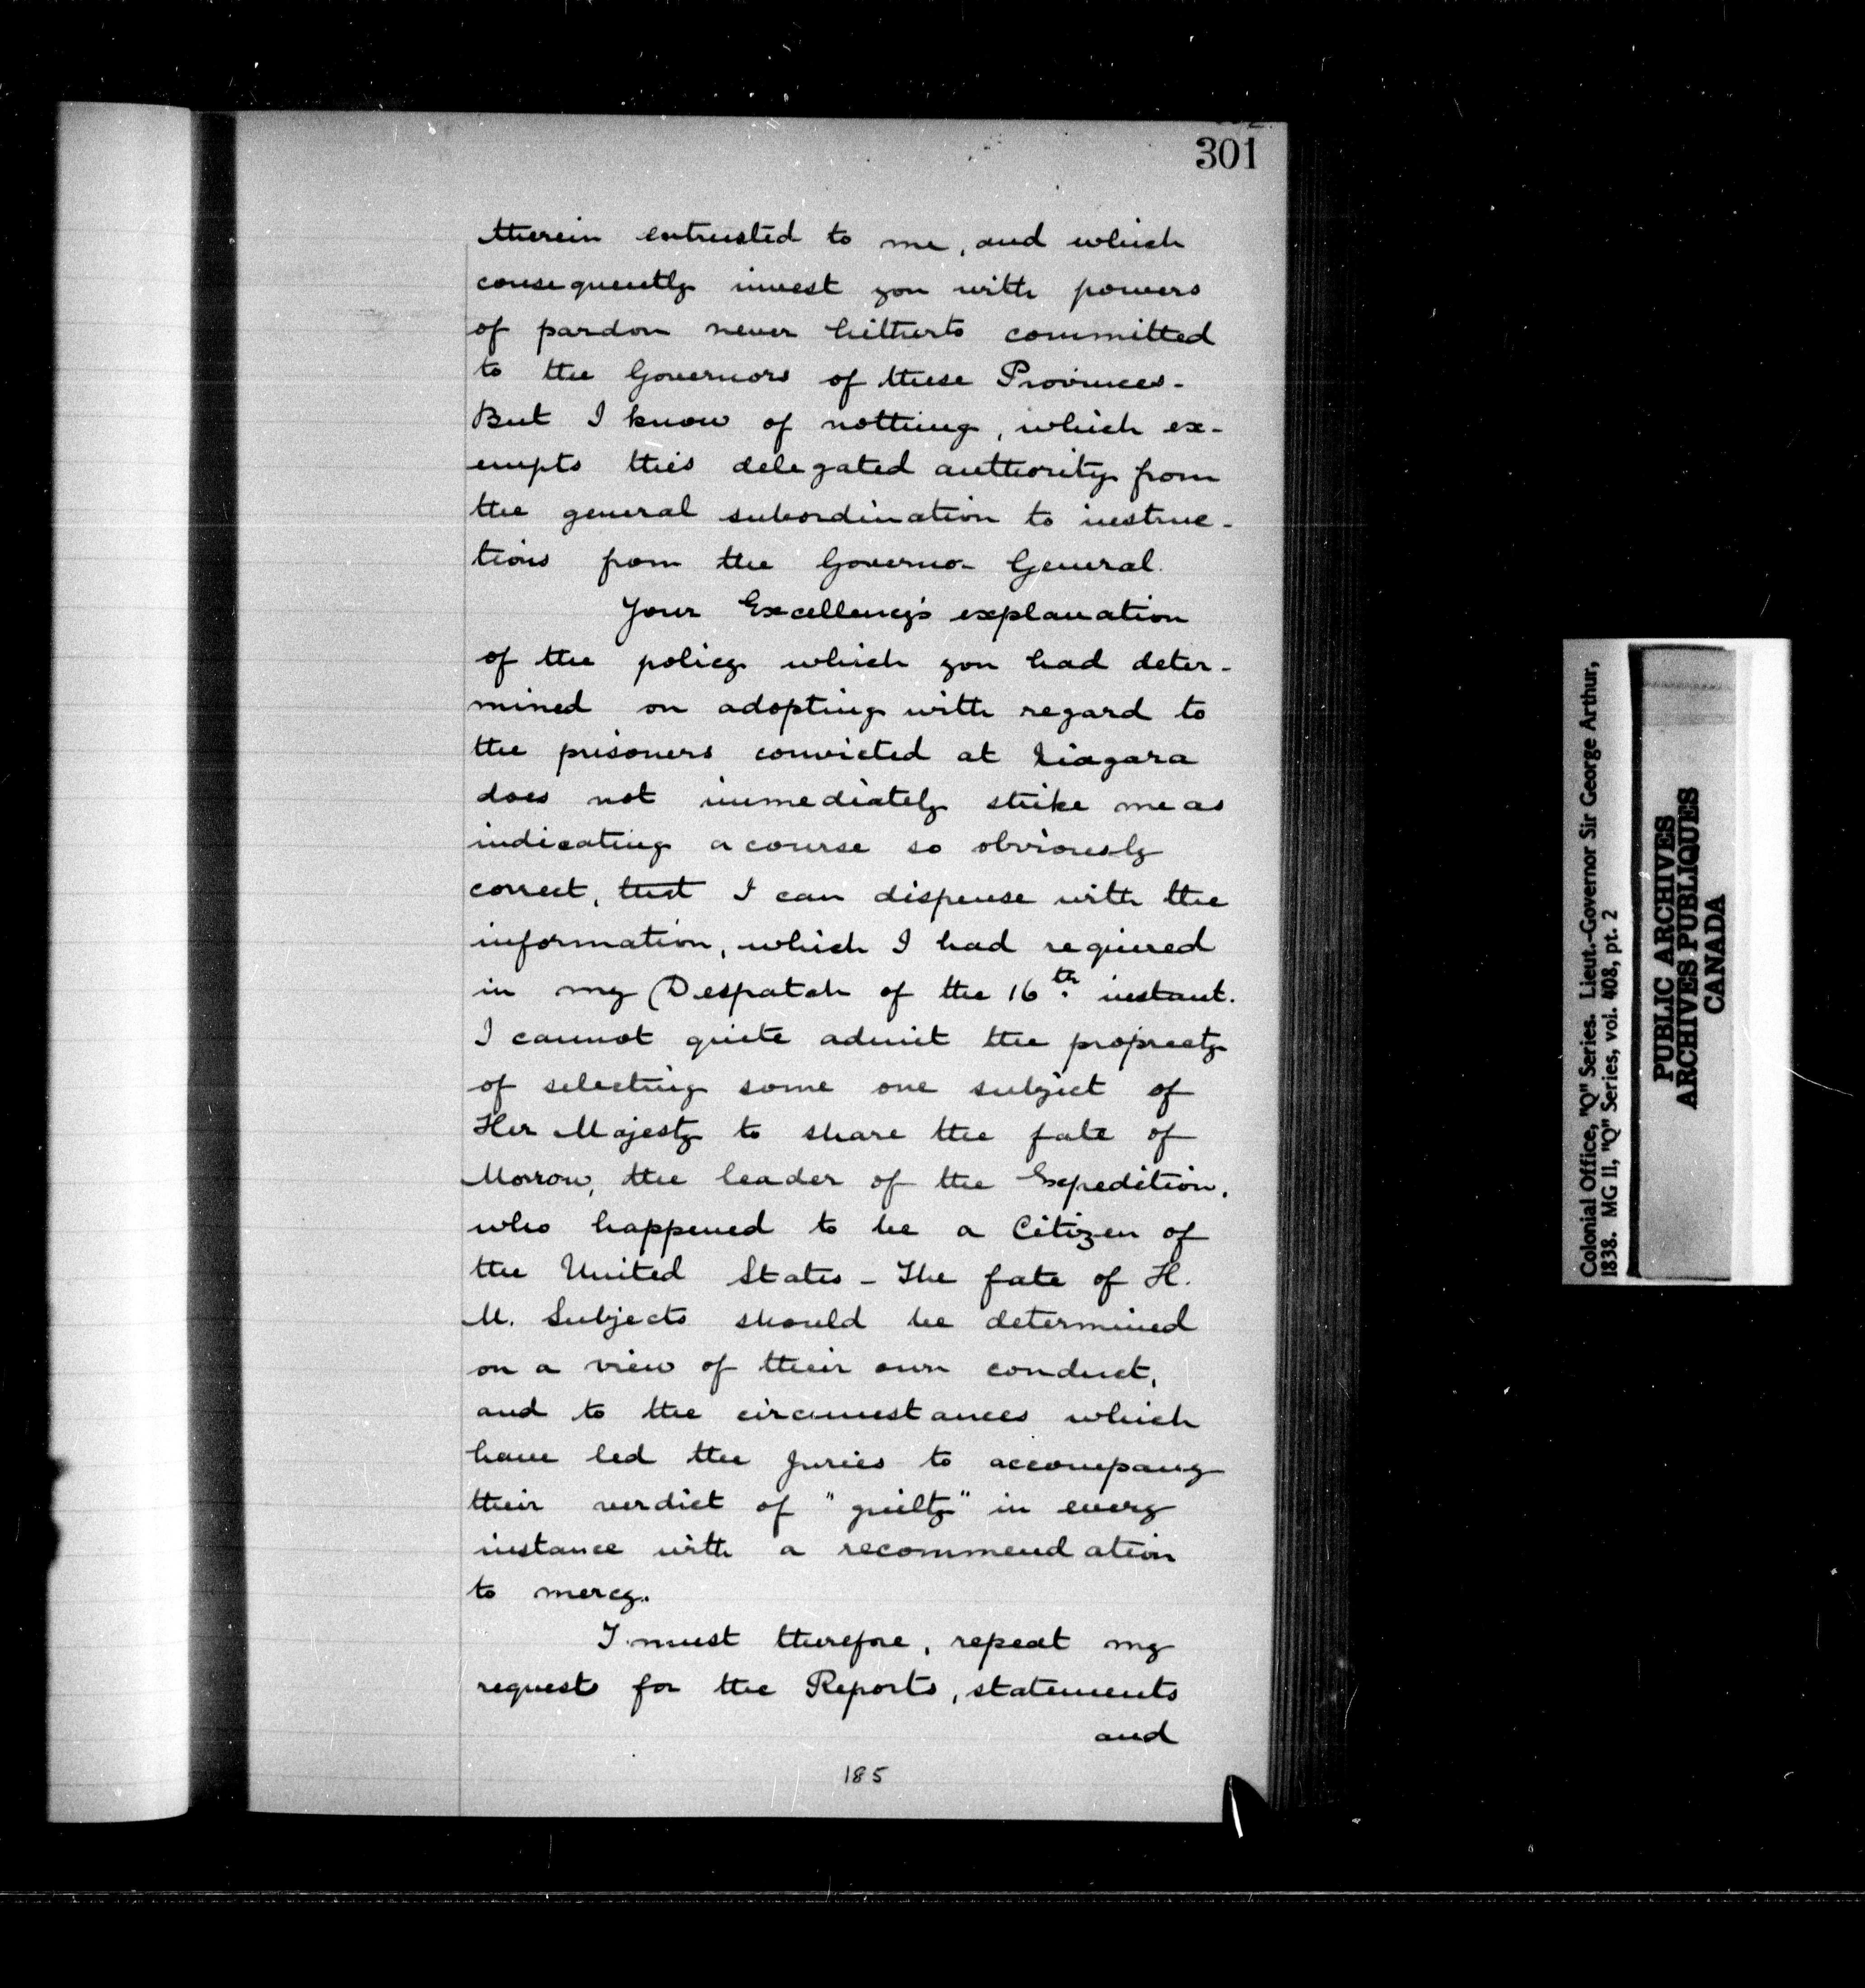 301
therein entrusted to me, and which
consequently invest you with powers
of pardon never hitherto committed
to the Governors of these Provinces-
But I know of nothing, which ex-
empts this delegated authority from
the general subordination to instruc-
tions from the Governor General.
Your Excellency's explanation
of the policy which you had deter-
mined on adopting with regard to
the prisoners convicted at Niagara
does not immediately strike me as
indicating a course so obviously
correct, that I can dispense with the
information, which I had required
in my Despatch of the 16th. instant.
I cannot quite admit the propriety
of selecting some one subject of
Her Majesty to share the fate of
Morrow, the leader of the Expedition,
who happened to be a Citizen of
the United States - The fate of H.
M. Subjects should be determined
on a view of their own conduct,
and to the circumstances which
have led the Juries to accompany
their verdict of "guilty" in every
instance with a recommendation
to mercy.
I must therefore, repeat my
request for the Reports, statements
and
185
Colonial Office, "Q" Series. Lieut.-Governor Sir George Arthur,
1838. MG 11, "Q" Series, vol. 408, pt. 2
PUBLIC ARCHIVES
ARCHIVES PUBLIQUES
CANADA